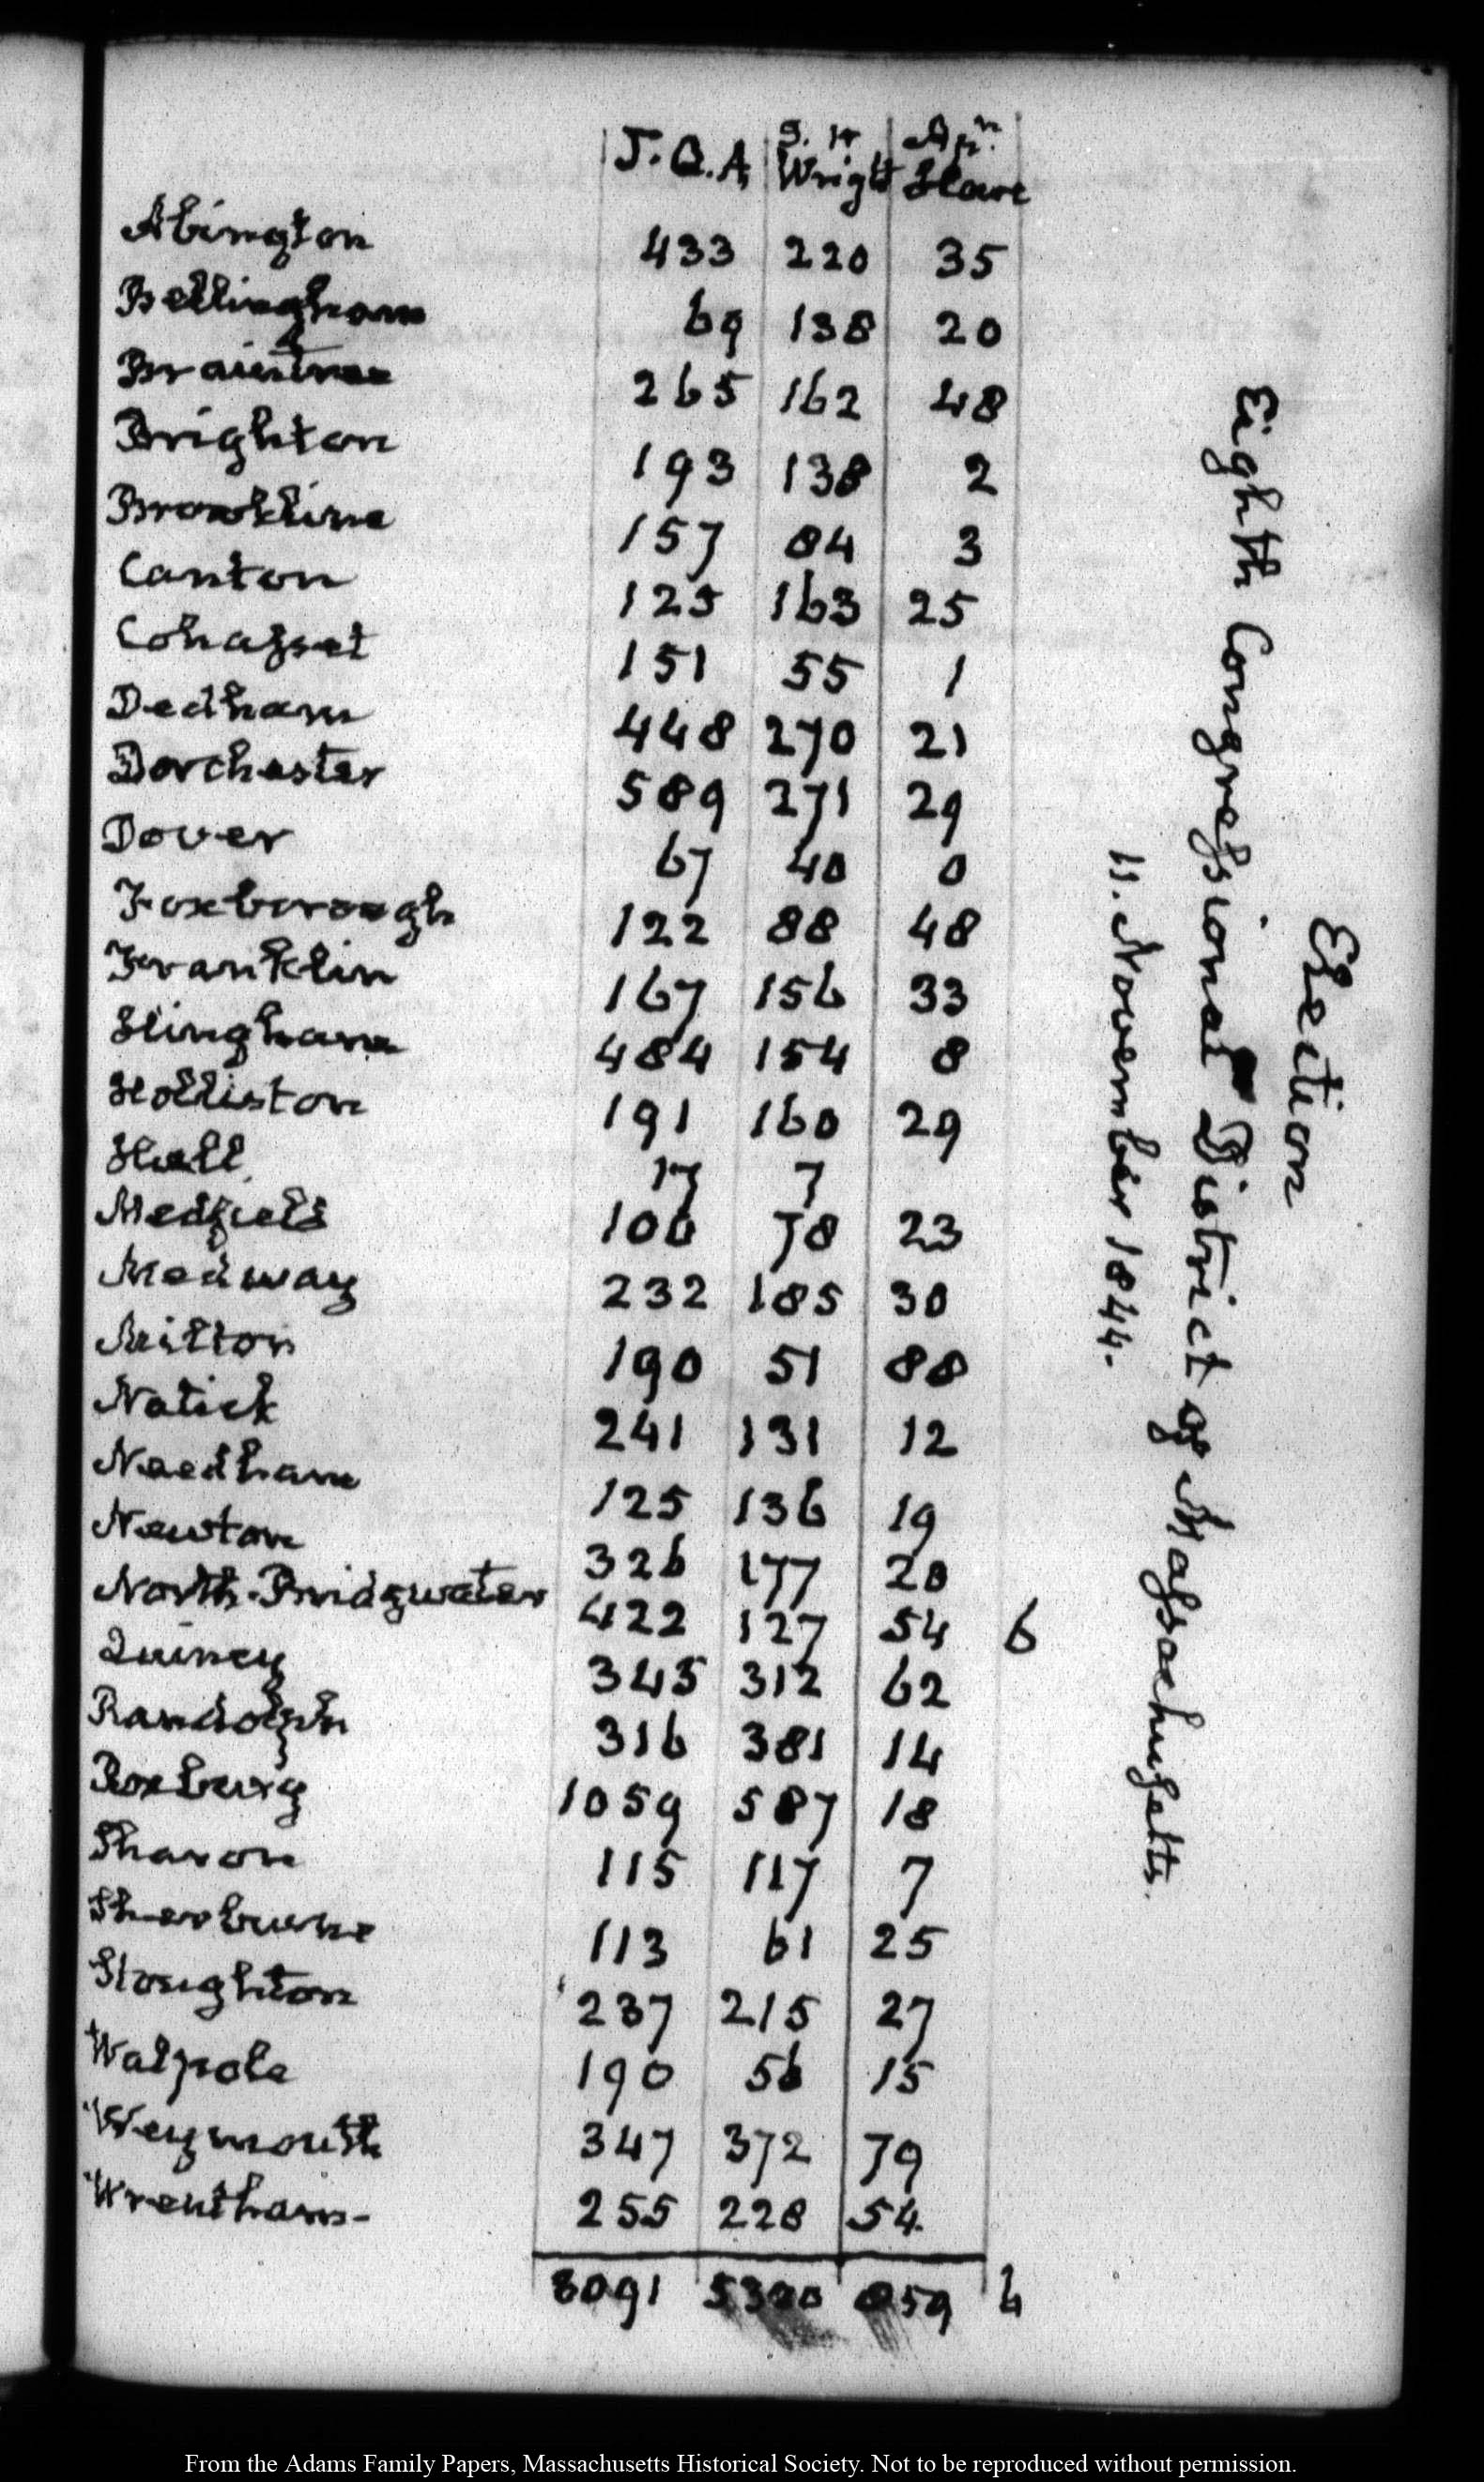 J. Q. A. S. H. Wright An.n Slave
Abington 433 220 35
Bellingham 69 138 20
Braintree 265 162 48
Brighton 193 138 2
Brookline 157 84 3
Canton 125 163 25
Cohasset 151 55 1
Dedham 448 270 21
Dorchester 589 271 29
Dover 67 40 0
Foxborough 122 88 48
Franklin 167 156 33
Hingham 484 154 8
Holliston 191 160 29
Hull 17 7
Medfield 100 78 23
Medway 232 185 30
Milton 190 51 88
Natick 241 131 12
Needham 125 136 19
Newton 326 177 20
North-Bridgwater 422 127 54 6
Quincy 345 312 62
Randolph 316 381 14
Roxbury 1059 587 18
Sharon 115 117 7
Sherburne 113 61 25
Stoughton 237 215 27
Walpole 190 56 15
Weymouth 347 372 79
Wrentham- 255 228 54
8091 5320 859 6
Election
Eighth Congressional District of Massachusetts.
11. November 1844.
From the Adams Family Papers, Massachusetts Historical Society. Not to be reproduced without permission.